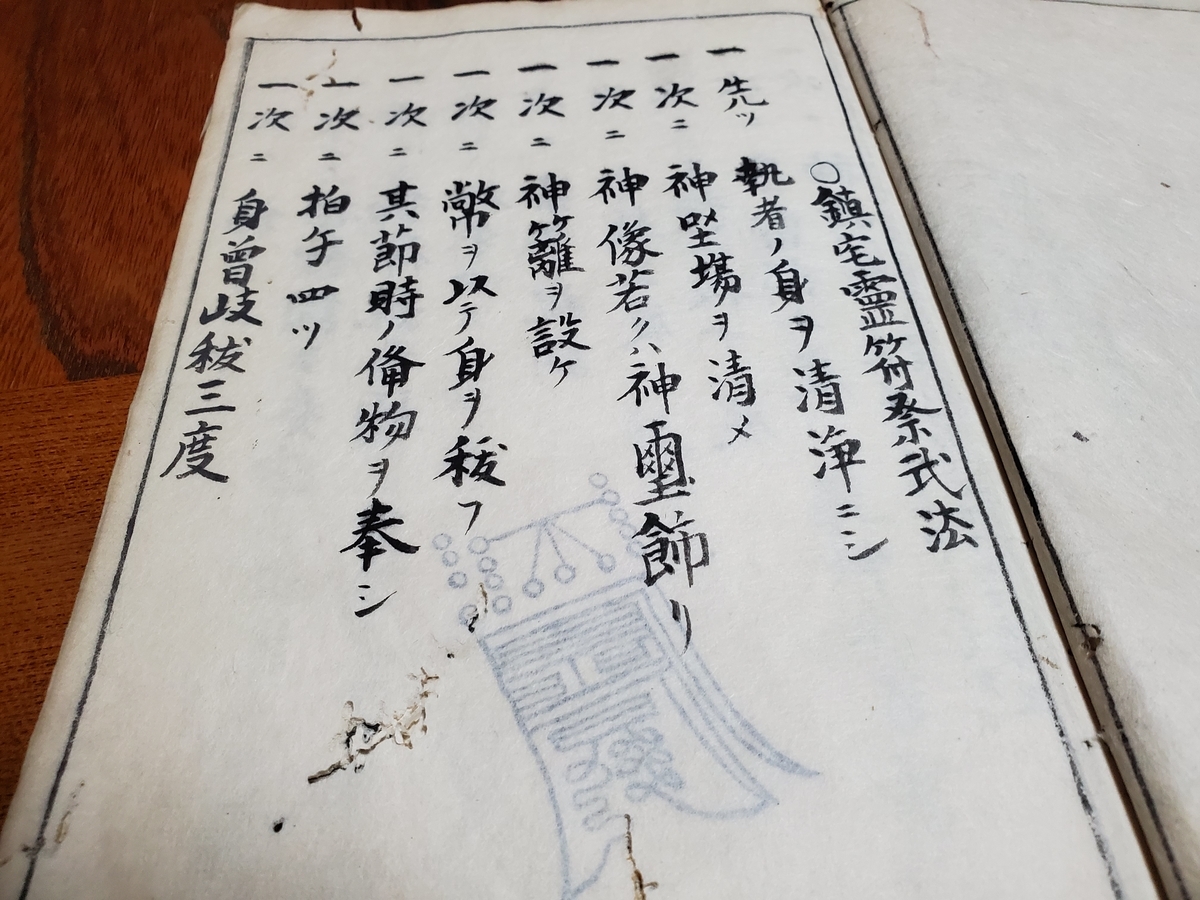 ○鎮宅霊符祭式法
一先ツ 執者ノ身ヲ清浄ニシ
一次ニ 神坐場ヲ清メ
一次ニ 神像若クハ神璽飾リ
一次ニ 神籬ヲ設ケ
一次ニ 幣ヲ以テ身ヲ祓フ
一次ニ 其節時ノ備物ヲ奉シ
一次ニ 拍手四ツ
一次ニ 身曽岐祓三度